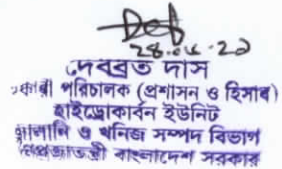 ২৪.০৬.২১
দেবব্রত দাস
সহকারী পরিচালক (প্রশাসন ও হিসাব)
হাইড্রোকার্বন ইউনিট
জ্বালানি ও খনিজ সম্পদ বিভাগ
গণপ্রজাতন্ত্রী বাংলাদেশ সরকার